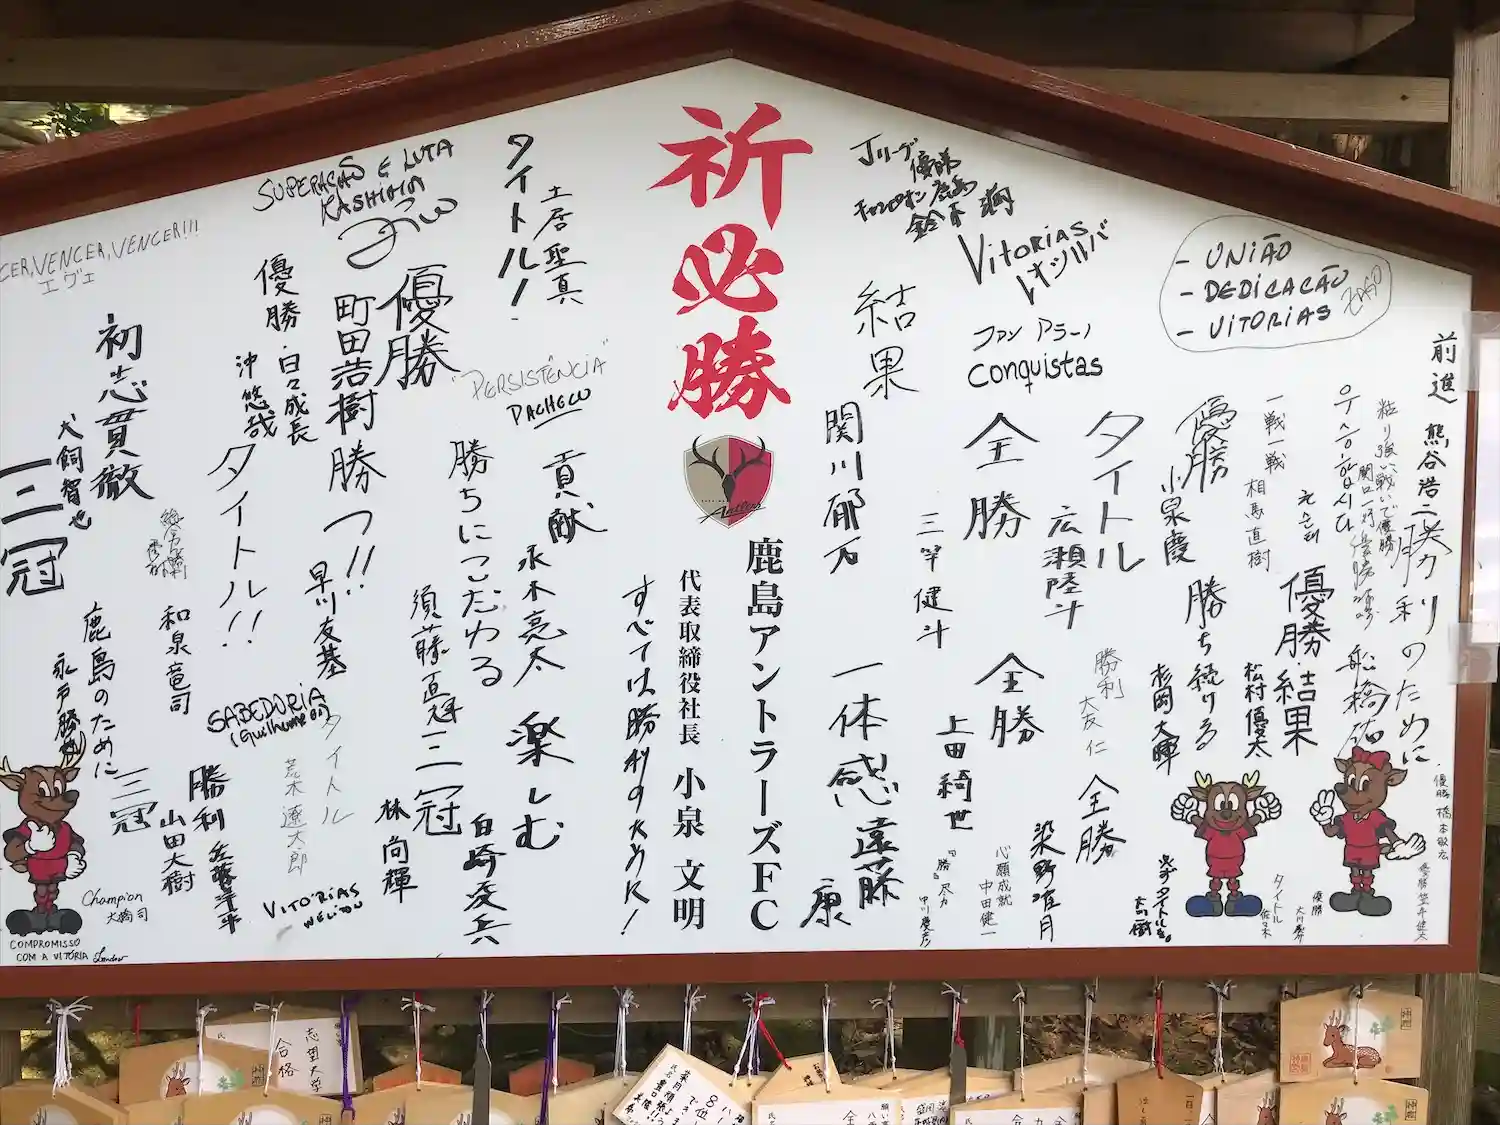 祈必勝
鹿島アントラーズFC
代表取締役社長 小泉 文明
Jリーグ
優勝
鹿島
鈴木
VITORIAS
レオシルバ
ファン アラーノ
Conquistas
- UNIÃO
- DEDICAÇÃO
- VITORIAS
前進 熊谷浩二
勝利のために
粘り強い戦いで優勝
우승합시다
一戦一戦 相馬直樹
優勝・結果
松村優太
優勝 小泉慶
勝ち続ける
杉岡大暉
タイトル
広瀬陸斗
勝利
大友 仁
全勝
染野唯月
全勝
三竿健斗
全勝
上田綺世
心願成就
中田健一
結果
関川郁万
一体感 遠藤 康
タイトル!
土居聖真
"PERSISTÊNCIA"
PACHECO
貢献
永木亮太
すべては勝利のために!
楽しむ
勝ちにこだわる
白崎凌兵
SUPERAÇÃO E LUTA
KASHIMA
優勝
町田浩樹
勝つ!!
早川友基
須藤直輝
三冠
林 尚輝
優勝・日々成長
沖 悠哉
タイトル!!
SABEDORIA
タイトル
荒木遼太郎
VITORIAS
WELITON
VENCER, VENCER!!!
エヴェ
初志貫徹
犬飼智也
三冠
和泉竜司
鹿島のために
永戸勝也
三冠
山田大樹
勝利
Champion
大橋司
COMPROMISSO
COM A VITÓRIA
タイトル
佐々木
優勝
優勝 橋本敏広
優勝 笠井健太
志望大学
合格